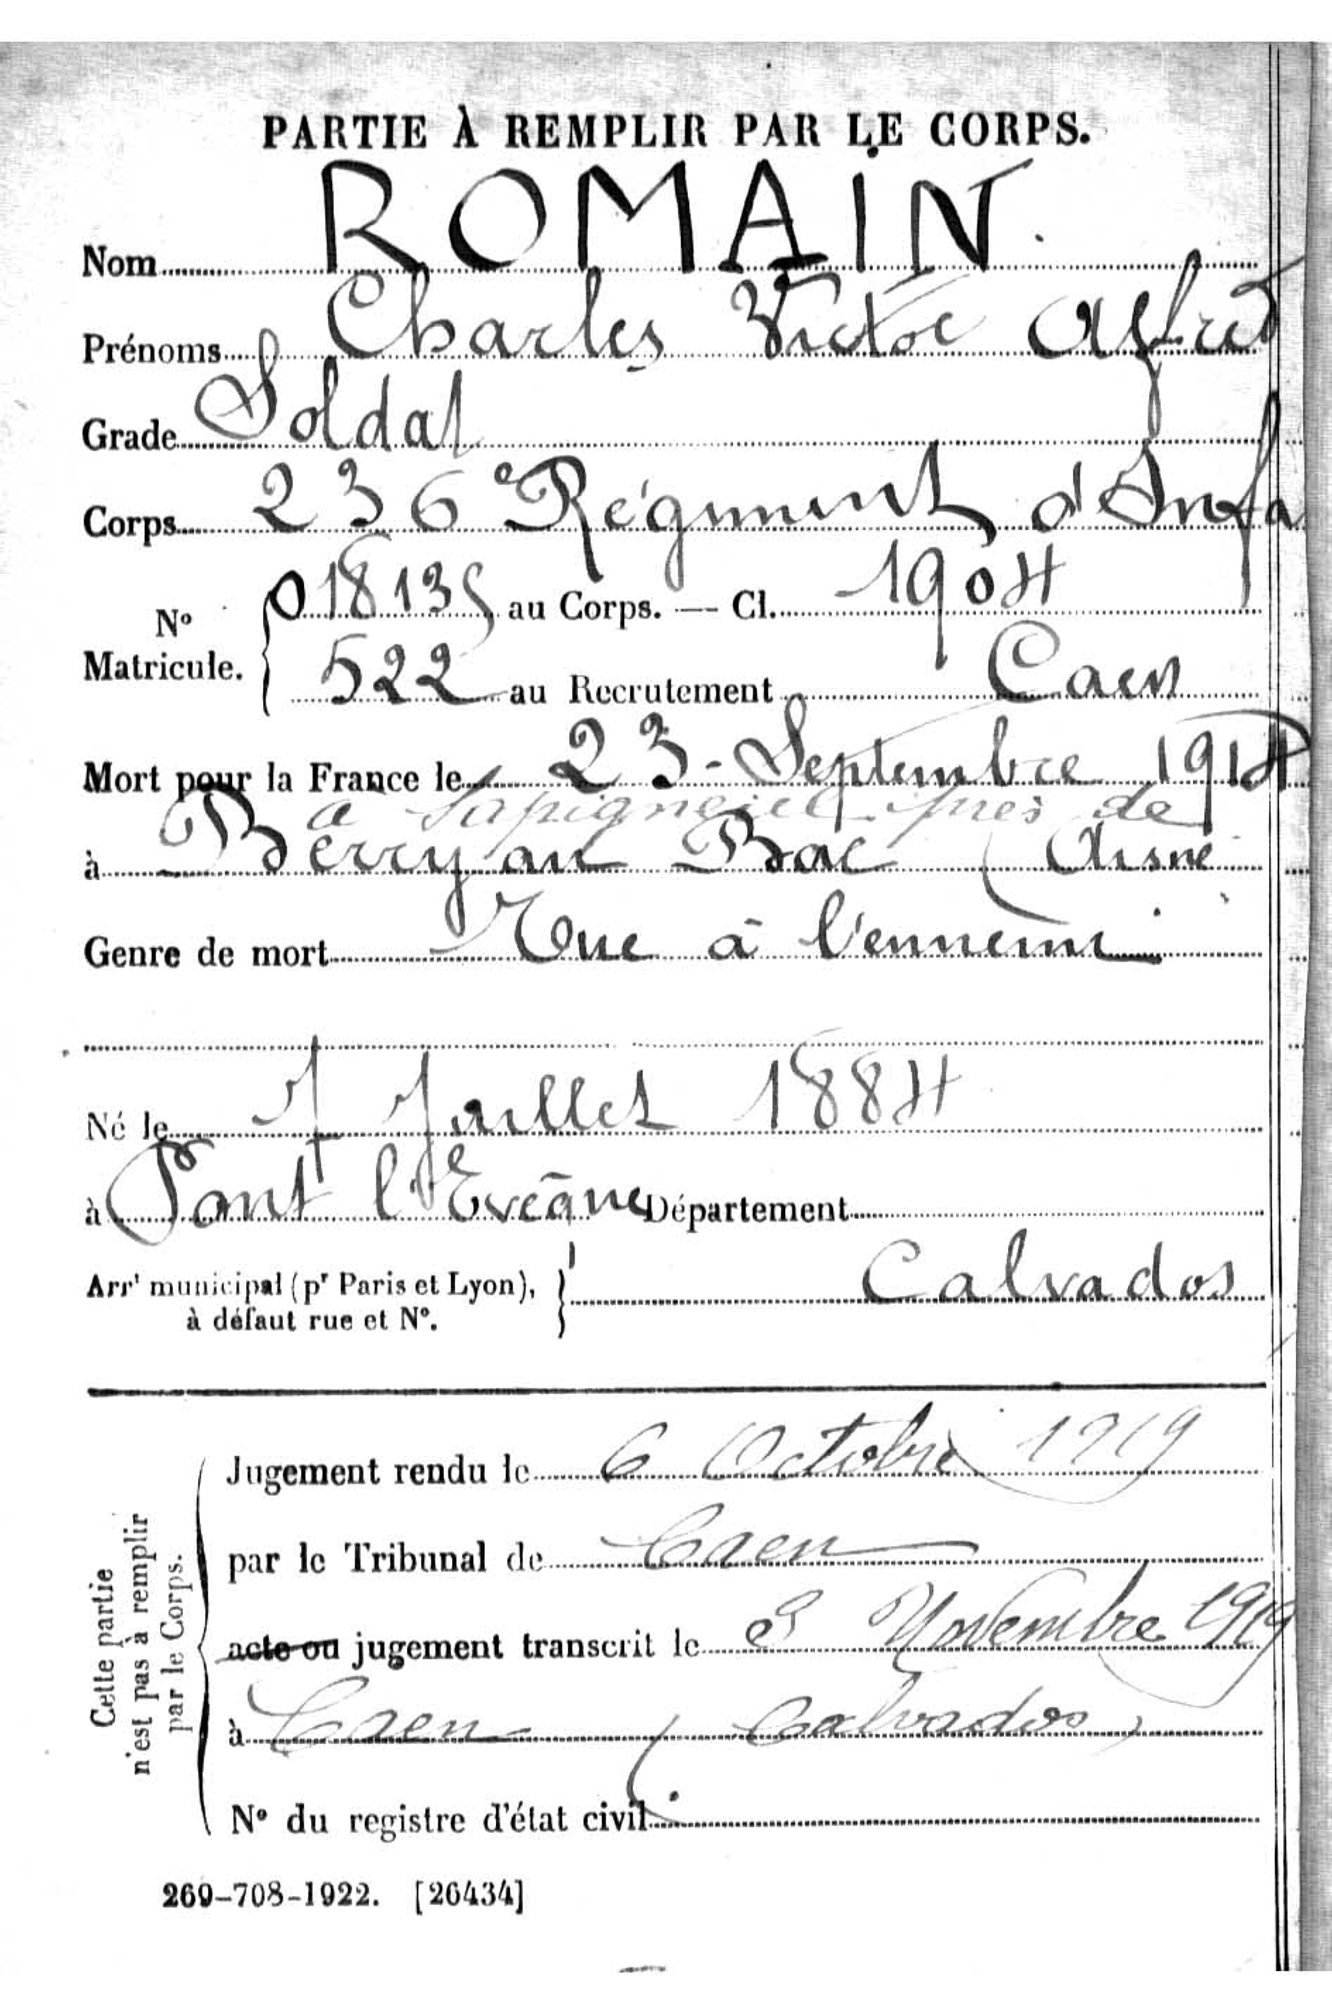 PARTIE À REMPLIR PAR LE CORPS.
Nom ROMAIN.
Prénoms Charles Victor Alfred
Grade Soldat
Corps 236e Régiment d'Infa
N° Matricule. 018135 au Corps. — Cl. 1904
522 au Recrutement Caen
Mort pour la France le 23 - Septembre 1914
a Sapigneul près de
à Berry au Bac (Aisne
Genre de mort Tué à l'ennemi
Né le 7 Juillet 1884
à Pont l'Evêque Département
Arrt municipal (pr Paris et Lyon), à défaut rue et N°. Calvados
Cette partie n'est pas à remplir par le Corps.
Jugement rendu le 6 Octobre 1919
par le Tribunal de Caen
acte ou jugement transcrit le 3 Novembre 1919
à Caen (Calvados)
N° du registre d'état civil
269-708-1922. [26434]